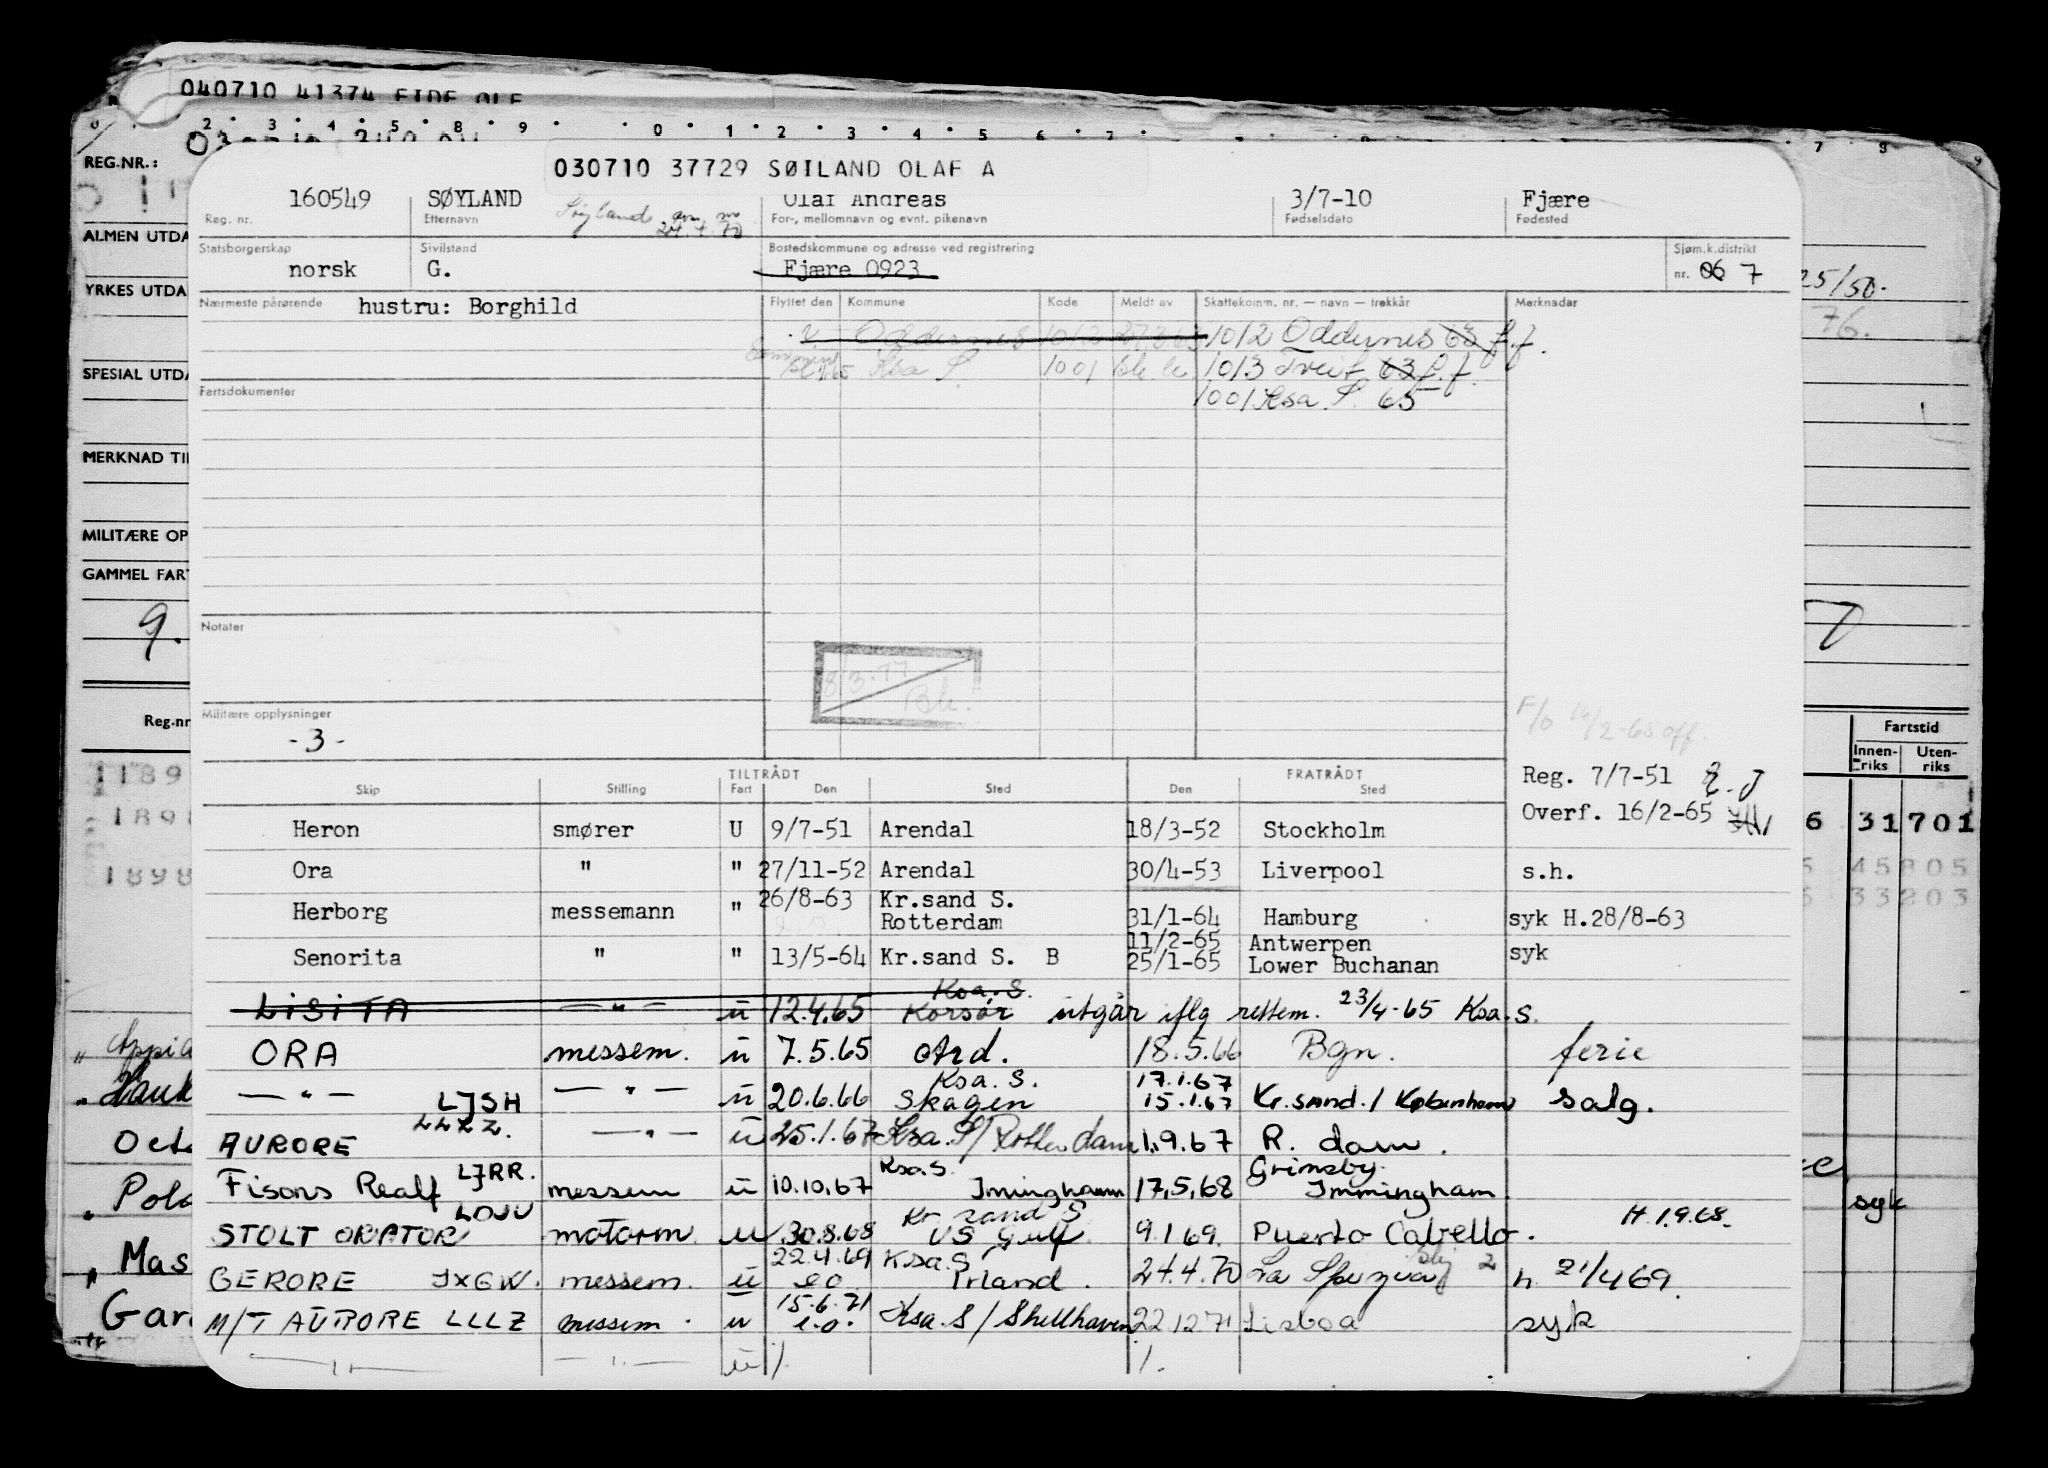 040710 41374 EIDE OLE
2 3 4 5 8 9 0 1 2 3 4 5 6 7 7 8 9
REG.NR.:
ALMEN UTDA
YRKES UTDA
25/50.
76.
SPESIAL UTDA
MERKNAD TIL
MILITÆRE OP
GAMMEL FART
9.
Reg.nr
1189
1898
1898
Fartstid
Innenriks
Utenriks
6 31 701
5 45 805
6 33 203
syk
Octa
Pola
Mas
Gar
030710 37729 SØILAND OLAF A
160549 SØYLAND Olaf Andreas 3/7-10 Fjære
Reg. nr. Etternavn For-, mellomnavn og evnt. pikenavn Fødselsdato Fødested
Statsborgerskap Sivilstand Bostedskommune og adresse ved registrering Sjøm.k.distrikt
norsk G. Fjære 0923 nr. 06 7
Nærmeste pårørende hustru: Borghild Flyttet den Kommune Kode Meldt av Skattekomm. nr. — navn — trekkår Merknader
Oddernes 1012 1012 Oddernes 63 f.f.
Ksa S. 1001 1013 Tveit 63 f.f.
1001 Ksa. S. 65
Fartsdokumenter
Notater
8/3.77
Militære opplysninger
-3-
F/o 16/2-65 off.
Reg. 7/7-51
Overf. 16/2-65
TILTRÅDT FRATRÅDT
Skip Stilling Fart Den Sted Den Sted
Heron smører U 9/7-51 Arendal 18/3-52 Stockholm
Ora " " 27/11-52 Arendal 30/4-53 Liverpool s.h.
Herborg messemann " 26/8-63 Kr.sand S. Rotterdam 31/1-64 Hamburg syk H.28/8-63
Senorita " " 13/5-64 Kr.sand S. B 11/2-65 25/1-65 Antwerpen Lower Buchanan syk
LISITA — " — u 12.4.65 Ksa. S. Korsør utgår iflg rettem. 23/4-65 Ksa. S.
ORA messem. u 7.5.65 Ard. 18.5.66 Bgn. ferie
— " — LJSH — " — u 20.6.66 Ksa. S. Skagen 17.1.67 15.1.67 Kr.sand. / København salg.
AURORE LLLZ. — " — u 25.1.67 Ksa. S/Rotterdam 1.9.67 R. dam.
Fisons Realf LJRR. messem u 10.10.67 Ksa.S. Iminghamn 17.5.68 Grimsby Immingham
STOLT ORATOR LDJU motorm. u 30.8.68 Kr sand S US Gulf 9.1 69. Puerto Cabello. H.1.9.68.
GERORE JXGW. messem. u 22.4.69 e.o Ksa.S, Irland. 24.4.70 La Spezia h. 21/4 69.
M/T AURORE LLLZ messem. u 15.6.71 e.o. Ksa. S / Shellhaven 22.12.71 Lisboa syk
— " — — " — u /. /.